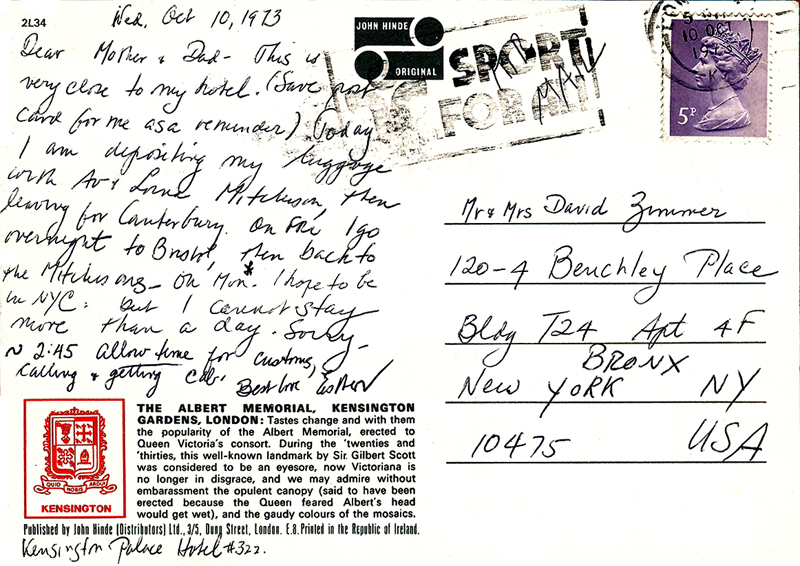 2L34
Wed, Oct 10, 1973
Dear Mother & Dad - This is
very close to my hotel. (Save post
card for me as a reminder) Today
I am depositing my luggage
with Av & Lorna Mitchison, then
leaving for Canterbury. On Fri, I go
overnight to Bristol, then back to
the Mitchisons - On Mon* I hope to be
in NYC: but I cannot stay
more than a day. Sorry -
~ 2:45 Allow time for customs,
calling & getting cab. Best love Esther
JOHN HINDE
ORIGINAL
SPORT
FOR ALL
AIR
MAIL
10 OCT
5P
Mr & Mrs David Zimmer
120-4 Benchley Place
Bldg T24 Apt 4F
BRONX
New YORK NY
10475 USA
QUID NOBIS ARDUI
KENSINGTON
THE ALBERT MEMORIAL, KENSINGTON
GARDENS, LONDON: Tastes change and with them
the popularity of the Albert Memorial, erected to
Queen Victoria's consort. During the 'twenties and
'thirties, this well-known landmark by Sir. Gilbert Scott
was considered to be an eyesore, now Victoriana is
no longer in disgrace, and we may admire without
embarrassment the opulent canopy (said to have been
erected because the Queen feared Albert's head
would get wet), and the gaudy colours of the mosaics.
Published by John Hinde (Distributors) Ltd., 3/5, Dung Street, London. E.8. Printed in the Republic of Ireland.
Kensington Palace Hotel #322.